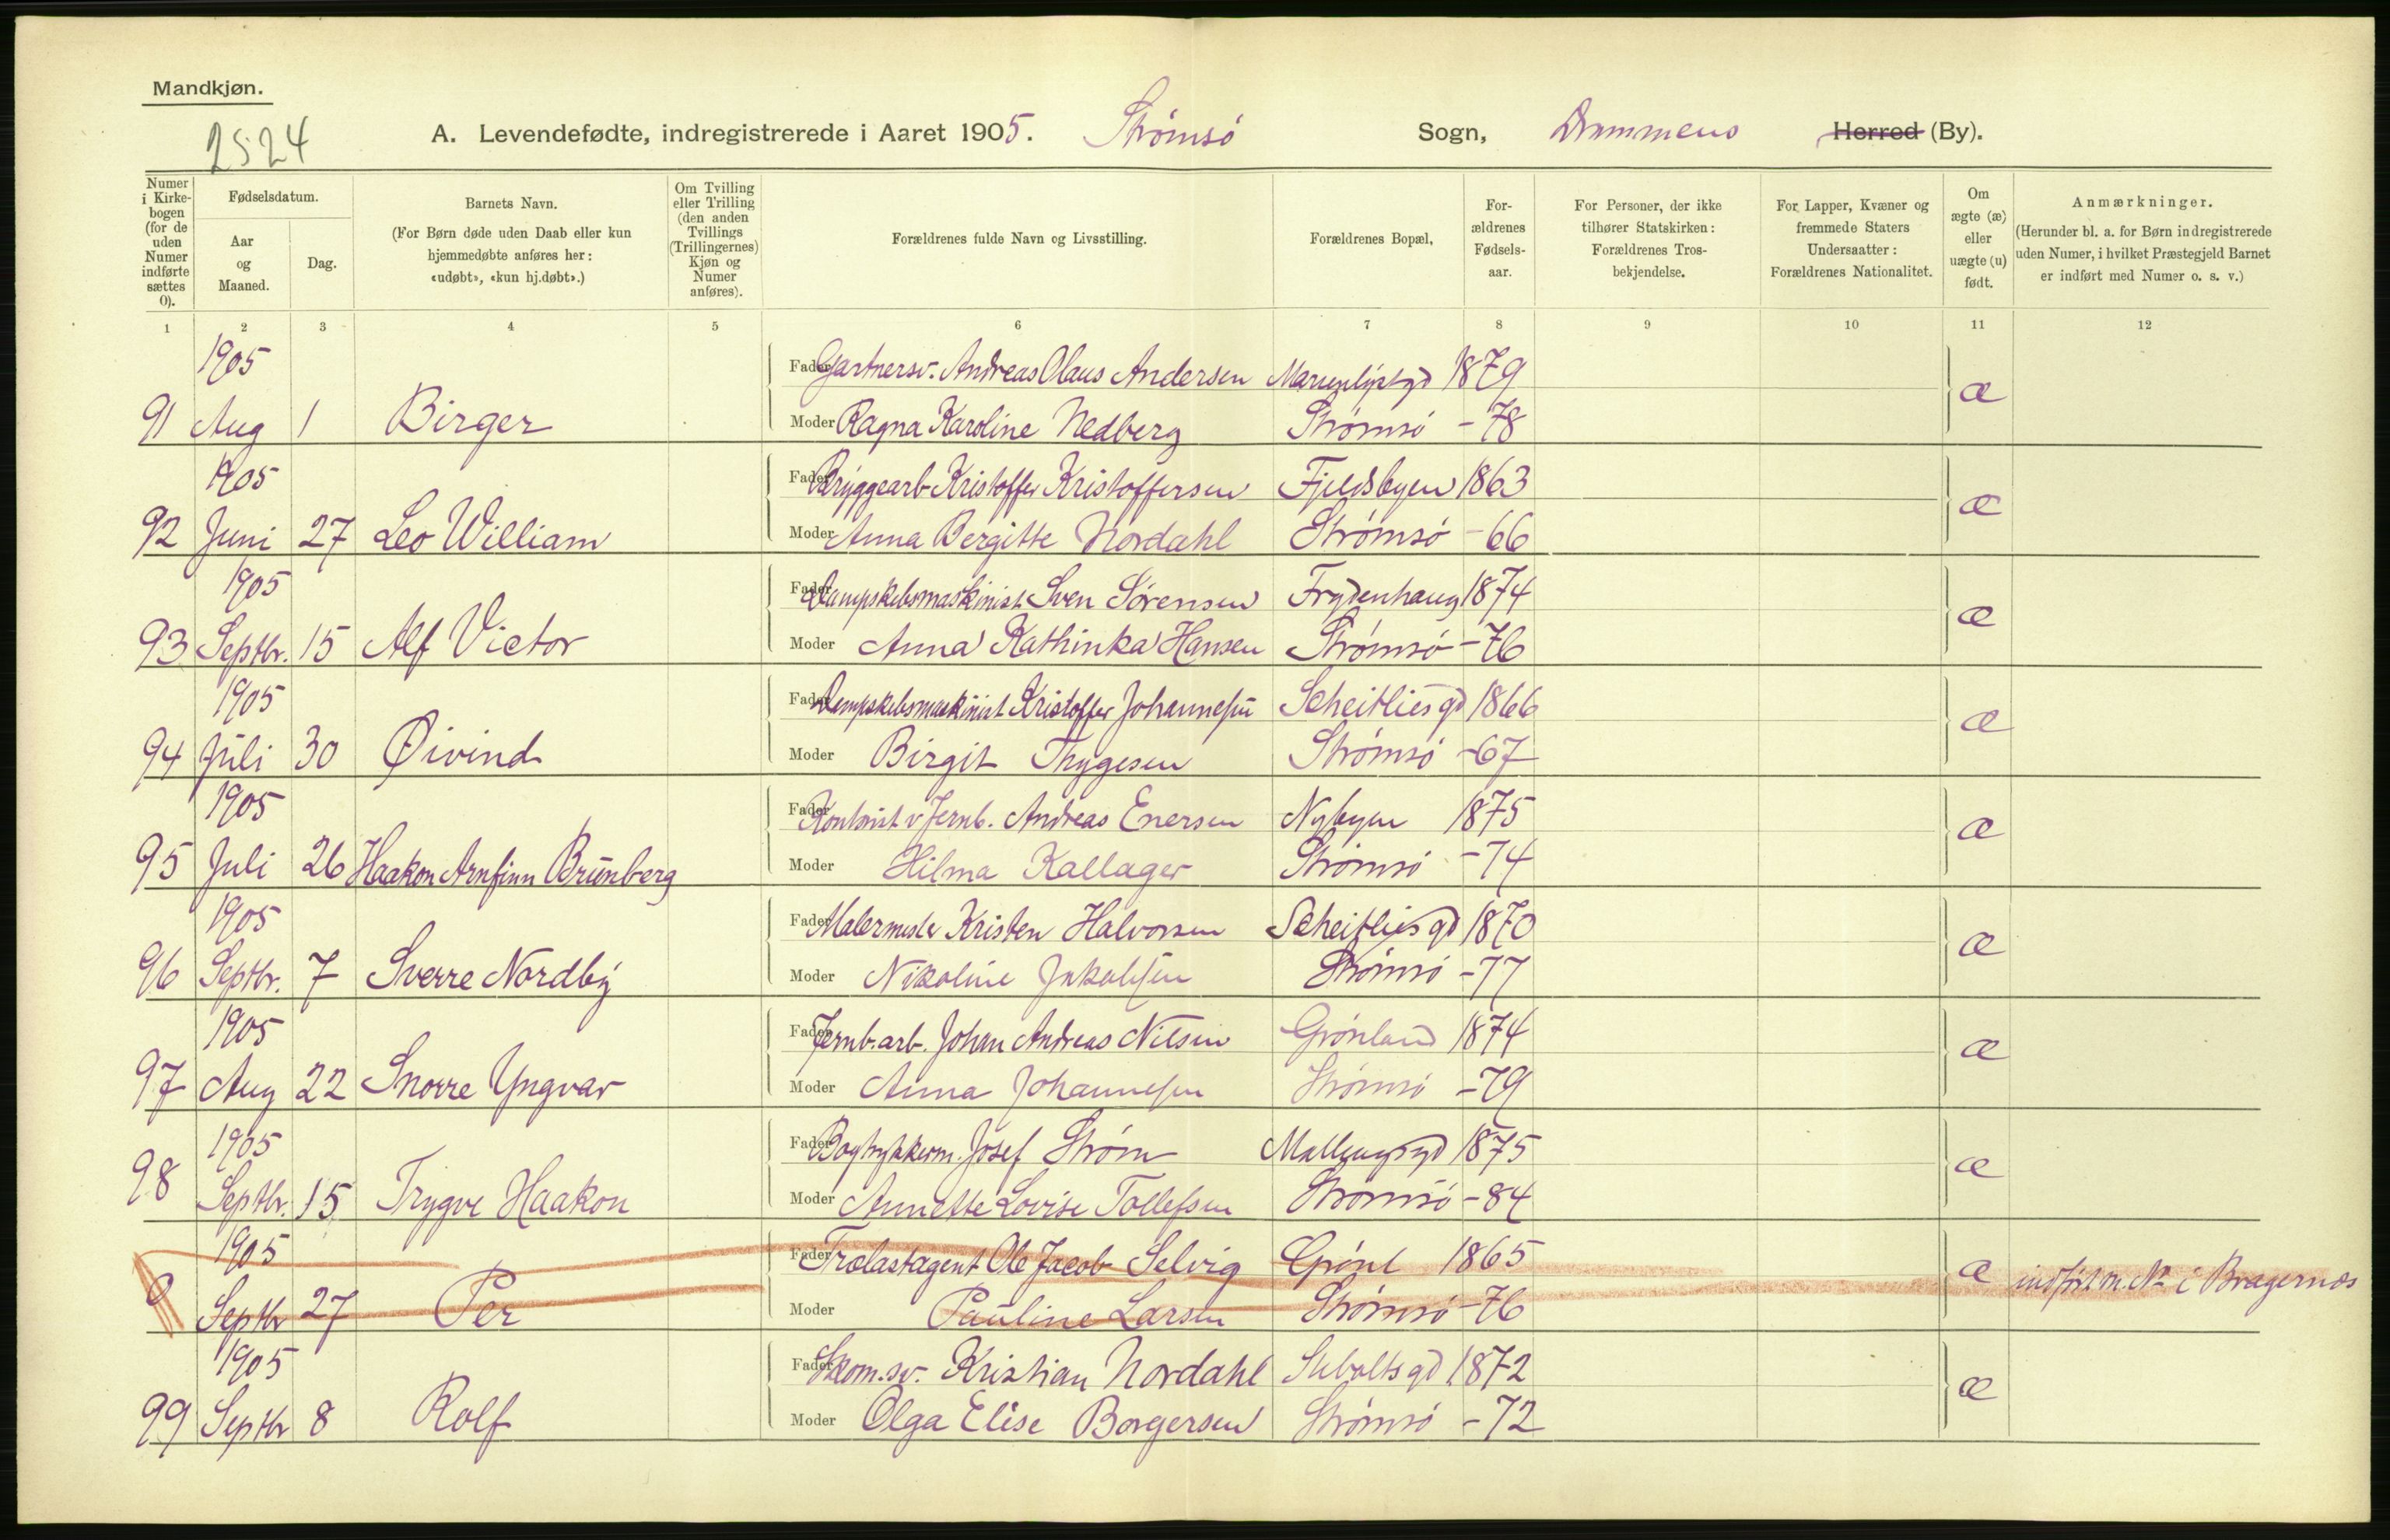 Mandkjøn.
2524
A. Levendefødte, indregistrerede i Aaret 1905. Strømsø Sogn, Drammens Herred (By).
Numer i Kirkebogen (for de uden Numer indførte sættes 0).
Fødselsdatum.
Aar og Maaned.
Dag.
Barnets Navn.
(For Børn døde uden Daab eller kun hjemmedøbte anføres her: «udøbt», «kun hj.døbt».)
Om Tvilling eller Trilling (den anden Tvillings (Trillingernes) Kjøn og Numer anføres).
Forældrenes fulde Navn og Livsstilling.
Forældrenes Bopæl,
Forældrenes Fødselsaar.
For Personer, der ikke tilhører Statskirken: Forældrenes Trosbekjendelse.
For Lapper, Kvæner og fremmede Staters Undersaatter: Forældrenes Nationalitet.
Om ægte (æ) eller uægte (u) født.
Anmærkninger.
(Herunder bl. a. for Børn indregistrerede uden Numer, i hvilket Præstegjeld Barnet er indført med Numer o. s. v.)
1 2 3 4 5 6 7 8 9 10 11 12
1905 Fader Gartnersv. Andreas Olaus Andersen Marienlystgd 1879 æ
91 Aug 1 Birger Moder Ragna Karoline Nedberg Strømsø -78
1905 Fader Bryggearb Kristoffer Kristoffersen Fjeldsbyen 1863 æ
92 Juni 27 Leo William Moder Anna Bergitte Nordahl Strømsø -66
1905 Fader Dampskibsmaskinist Sven Sørensen Frydenhaug 1874 æ
93 Septbr. 15 Alf Victor Moder Anna Kathinka Hansen Strømsø -76
1905 Fader Dampskibsmaskinist Kristoffer Johannesen Scheitliesgd 1866 æ
94 Juli 30 Øivind Moder Birgit Thygesen Strømsø -67
1905 Fader Kontorist v Jernb. Andreas Enersen Nybyen 1875 æ
95 Juli 26 Haakon Arnfinn Brünberg Moder Hilma Kallager Strømsø -74
1905 Fader Malermester Kristen Halvorsen Scheitliesgd 1870 æ
96 Septbr. 7 Sverre Nordby Moder Nikoline Jakobsen Strømsø -77
1905 Fader Jernb.arb. Johan Andreas Nilsen Grønland 1874 æ
97 Aug 22 Snorre Yngvar Moder Anna Johannesen Strømsø -79
1905 Fader Bogtrykkerm. Josef Strøm 1875 æ
98 Septbr. 15 Trygve Haakon Moder Annette Lovise Tollefsen Strømsø -84
1905 Fader Trælastagent Ole Jacob Selvig Grønl 1865 æ indført m. No i Bragernæs
0 Septbr 27 Per Moder Pauline Larsen Strømsø -76
1905 Fader Skom.sv. Kristian Nordahl 1872 æ
99 Septbr 8 Rolf Moder Olga Elise Borgersen Strømsø -72